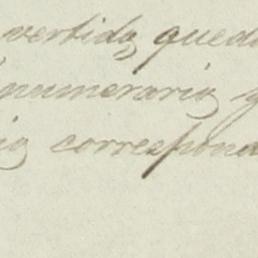 vertida queda
numeraria y
ia correspond